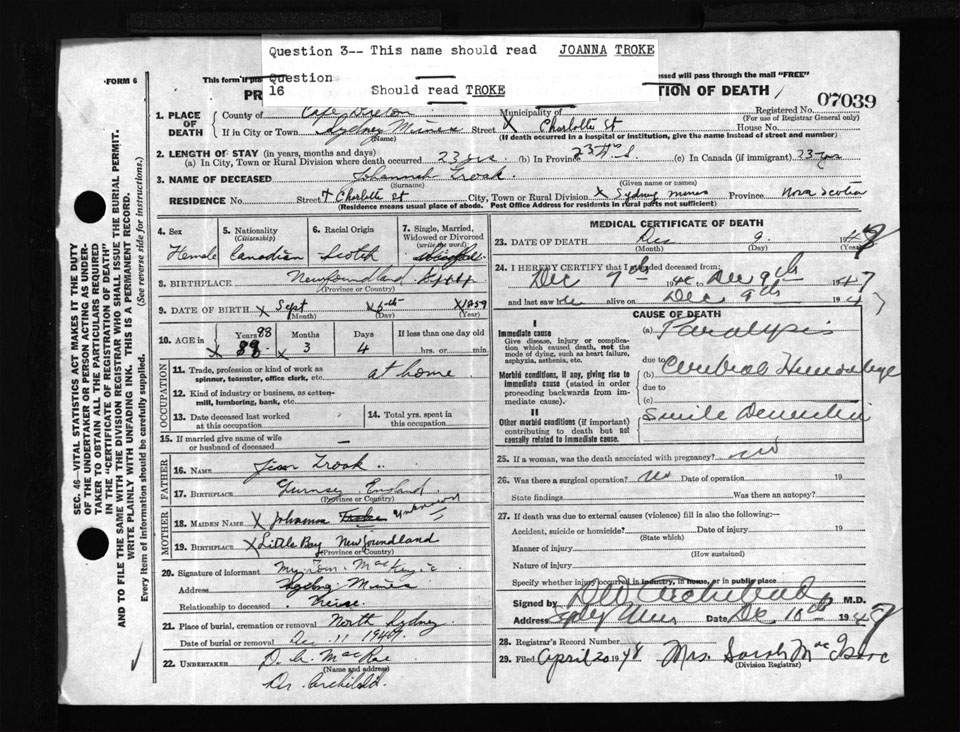 Question 3-- This name should read JOANNA TROKE
Question
16 Should read TROKE
FORM 6
This form if pla
ssed will pass through the mail "FREE"
PR
TION OF DEATH
Registered No. 07039
(For use of Registrar General only)
1. PLACE OF DEATH
County of Cape Breton
Municipality of
If in City or Town Sydney Mines Street X Charlotte St House No.
(Name)
(If death occurred in a hospital or institution, give the name instead of street and number)
2. LENGTH OF STAY (in years, months and days)
(a) In City, Town or Rural Division where death occurred 23 yrs (b) In Province 23 yrs (c) In Canada (if immigrant) 23 yrs
3. NAME OF DECEASED Johannah Troak
(Surname) (Given name or names)
RESIDENCE No. Street X Charlotte St City, Town or Rural Division X Sydney Mines Province Nova Scotia
(Residence means usual place of abode. Post Office Address for residents in rural parts not sufficient)
4. Sex
Female
5. Nationality
(Citizenship)
Canadian
6. Racial Origin
Scotch
7. Single, Married, Widowed or Divorced
(write the word)
8. BIRTHPLACE Newfoundland
(Province or Country)
9. DATE OF BIRTH X Sept X 6th X 1859
(Month) (Day) (Year)
10. AGE in
Years 88
X 88
Months
X 3
Days
4
If less than one day old
hrs. or min.
OCCUPATION
11. Trade, profession or kind of work as spinner, teamster, office clerk, etc. at home
12. Kind of industry or business, as cotton-mill, lumbering, bank, etc.
13. Date deceased last worked at this occupation
14. Total yrs. spent in this occupation
15. If married give name of wife or husband of deceased —
FATHER
16. NAME Troak
17. BIRTHPLACE Gurnsey England
(Province or Country)
MOTHER
18. MAIDEN NAME X Johanna Troke unknown
19. BIRTHPLACE X Little Bay Newfoundland
(Province or Country)
20. Signature of informant Mrs Tom. MacKenzie
Address Sydney Mines
Relationship to deceased Neice
21. Place of burial, cremation or removal North Sydney
Date of burial or removal Dec. 11 1947
22. UNDERTAKER D. A. MacRae
(Name and address)
Dr. Archibald.
MEDICAL CERTIFICATE OF DEATH
23. DATE OF DEATH Dec 9 1947
(Month) (Day)
24. I HEREBY CERTIFY that I attended deceased from:
Dec 9th 194 to Dec 9th 1947
and last saw her alive on Dec 9th 1947
CAUSE OF DEATH
I
Immediate cause
Give disease, injury or complication which caused death, not the mode of dying, such as heart failure, asphyxia, asthenia, etc.
(a) Paralysis
due to
Morbid conditions, if any, giving rise to immediate cause (stated in order proceeding backwards from immediate cause).
(b) Cerebral Hemorrhage
due to
(c)
II
Other morbid conditions (if important) contributing to death but not causally related to immediate cause.
Senile Dementia
25. If a woman, was the death associated with pregnancy? no
26. Was there a surgical operation? no Date of operation 19
State findings Was there an autopsy?
27. If death was due to external causes (violence) fill in also the following:—
Accident, suicide or homicide? Date of injury 19
(State which)
Manner of injury
(How sustained)
Nature of injury
Specify whether injury occurred in industry, in home, or in public place
Signed by Archibald M.D.
Address Sydney Mines Date Dec 10th 1947
28. Registrar's Record Number
29. Filed April 20 1948 Mrs. Sarah MacIsaac
(Division Registrar)
SEC. 46—VITAL STATISTICS ACT MAKES IT THE DUTY
OF THE UNDERTAKER OR PERSON ACTING AS UNDER-
TAKER TO OBTAIN ALL THE PARTICULARS REQUIRED
IN THE "CERTIFICATE OF REGISTRATION OF DEATH"
AND TO FILE THE SAME WITH THE DIVISION REGISTRAR WHO SHALL ISSUE THE BURIAL PERMIT.
WRITE PLAINLY WITH UNFADING INK. THIS IS A PERMANENT RECORD.
Every item of information should be carefully supplied. (See reverse side for instructions.)